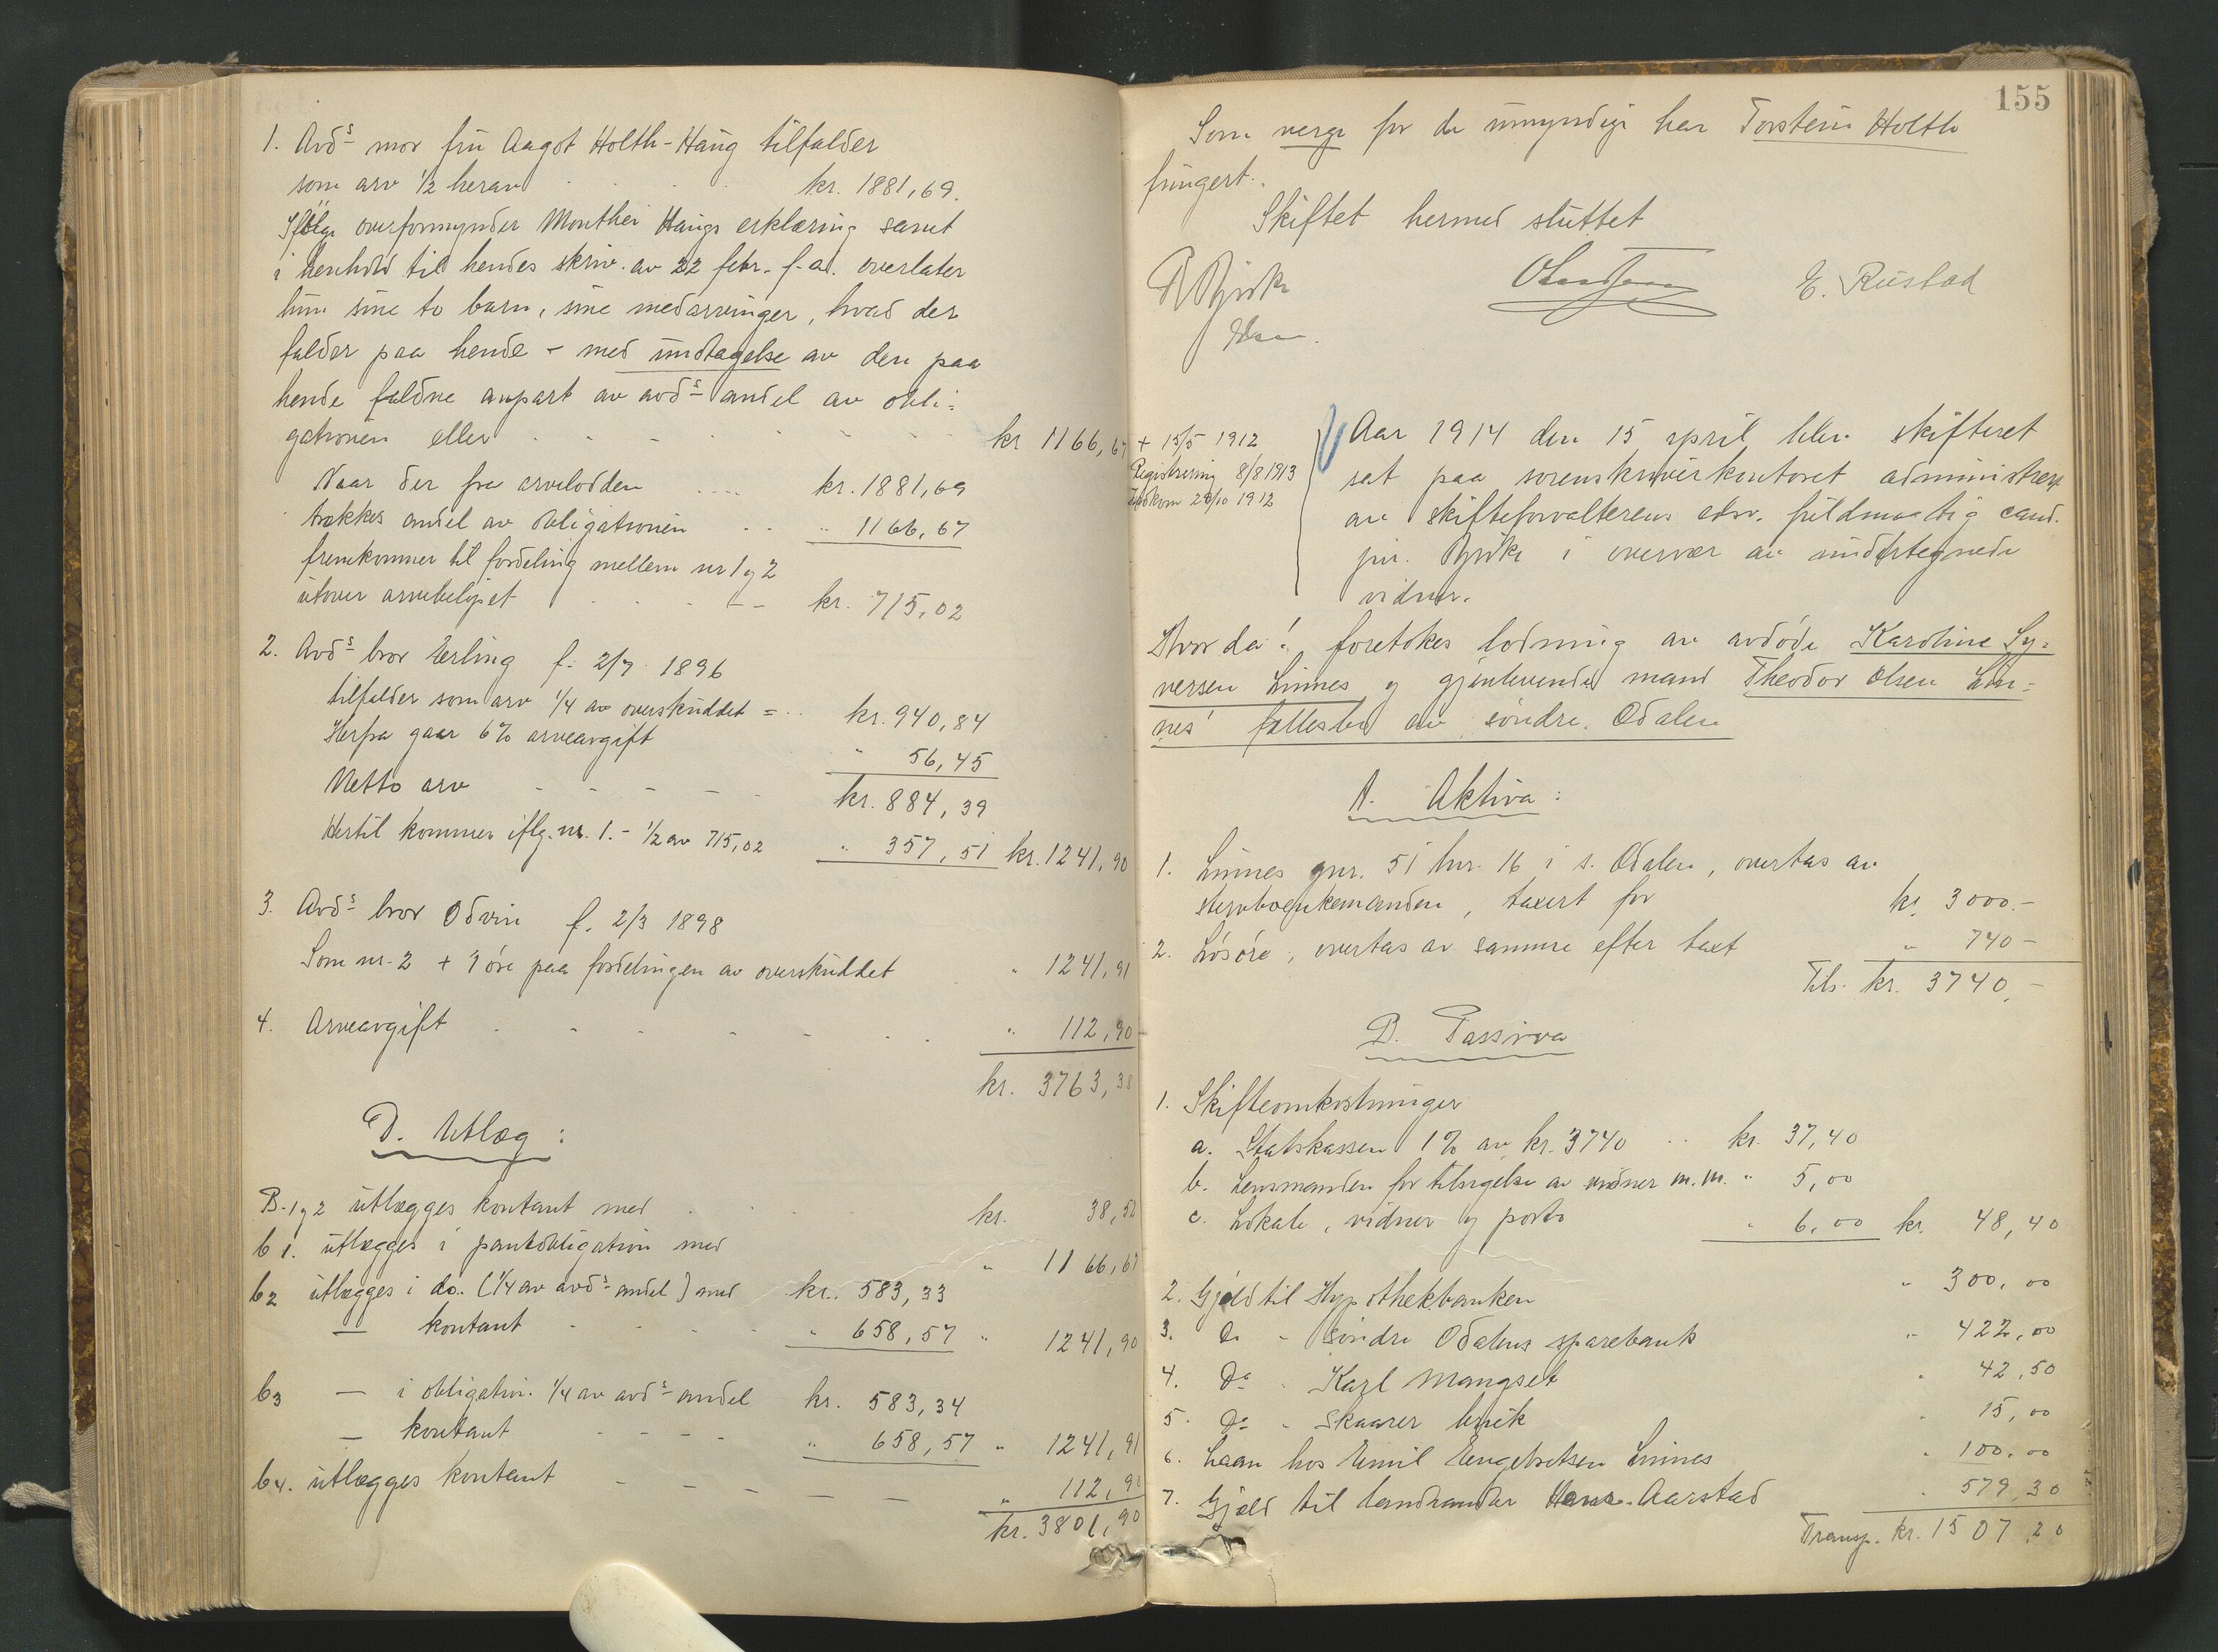 1. Avd.s mor fru Aagot Holth-Haug tilfalder
som arv 1/2 herav . . . . kr. 1881,69.
Ifølge overformynder Monthei Haugs erklæring samt
i henhold til hendes skriv. av 22 febr. f.a. overlater
hun sine to barn, sine medarvinger, hvad der
falder paa hende - med undtagelse av den paa
hende faldne anpart av avd.s andel av obli=
gationen eller . . - . . . . kr 1166,67
Naar der fra arvelodden .... kr. 1881,69
trækkes andel av obligationen . . " 1166,67
fremkommer til fordeling mellem nr 1 og 2
utover arvebeløpet . . . - - kr. 715,02
2. Avd.s bror Erling f. 2/7 1896
tilfalder som arv 1/4 av overskuddet = .. kr. 940,84
Herpa gaar 6% arveavgift " 56,45
Netto arv - - - - - kr. 884,39
Hertil kommer iflg. nr. 1. - 1/2 av 715,02 " 357,51 kr. 1241,90
3. Avd.s bror Odvin f. 2/3 1898
Som nr. 2 + 1 øre paa fordelingen av overskuddet " 1241,91
4. Arveavgift . - - - - . . " 112,90
kr. 3763,38
D. Utlæg :
B. 1 og 2 utlægges kontant med . . . . kr. 38,52
b 1. utlægges i pantobligation med " 1166,67
b2 utlægges i do. (1/4 av avd.s andel) med kr. 583,33
— kontant - - - - " 658,57 " 1241,90
b3 — i obligation 1/4 av avd.s andel kr. 583,34
— kontant - - - - " 658,57 " 1241,91
b4. utlægges kontant - - - - - " 112,90
kr. 3801,90
155
Som verge for de umyndige har Torstein Holth
fungert.
Skiftet hermed sluttet
E. Rustad
+ 15/5 1912
Registrering 8/8 1913
Indkom 28/10 1912
Aar 1914 den 15 april blev skifteret
sat paa sorenskriverkontoret administrert
av skifteforvalterens edsv. fuldmægtig cand.
jur. i overvær av undertegnede
vidner.
Hvorda! foretokes lodning av avdøde Karoline Sy=
versen Linnes og gjenlevende mand Theodor Olsen Lin=
nes' fællesbo av søndre Odalen
A. Aktiva :
1. Linnes gnr. 51 bnr. 16 i s. Odalen, overtas av
stervboenkemanden, taxert for kr. 3000.-
2. Løsøre, overtas av samme efter taxt " 740 -
Tils. kr. 3740,-
B. Passiva
1. Skifteomkostninger
a. Statskassen 1% av kr. 3740 .. kr. 37,40
b. Lensmanden for tilsigelse av vidner m.m. " 5,00
c. Lokale, vidner og porto " 6,00 kr. 48,40
2. Gjæld til Hypothekbanken " 300,00
3. Do - søndre Odalens sparebank " 422,00
4. Do - Karl Mangset " 42,50
5. Do - Skaarer bruk " 15,00
6. Laan hos Emil Engebretsen Linnes " 100,00
7. Gjæld til landhandler Hans Aarstad " 579,30
Transp. kr. 1507,20